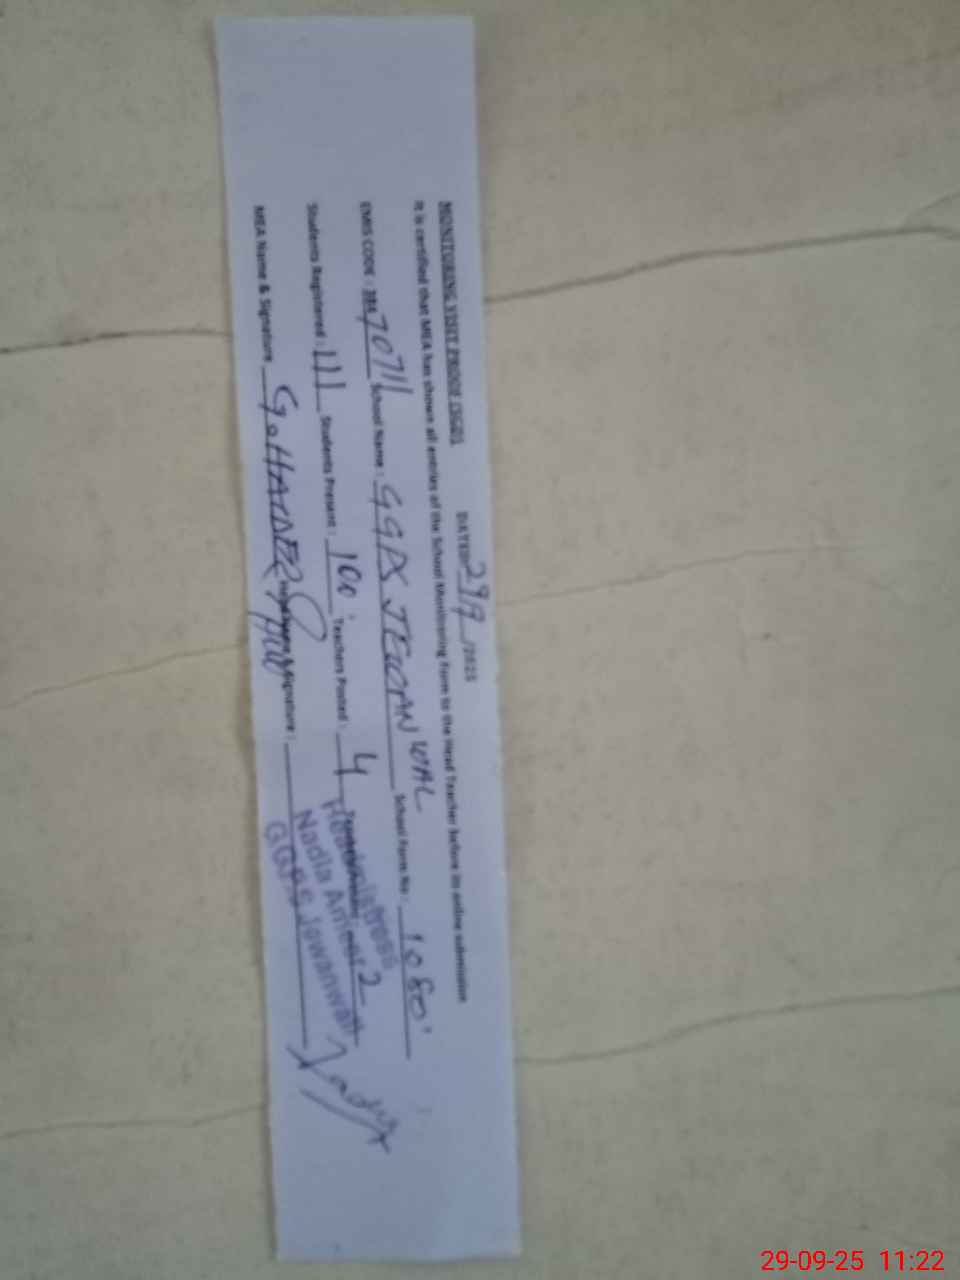 MONITORING VISIT PROOF (SGD) DATED 29/9/2025
It is certified that MEA has shown all entries of the School Monitoring Form to the Head Teacher before its online submission
EMIS CODE : 70711 School Name : GGPS JEWAN WAL School Form No : 1080
Students Registered : 111 Students Present : 100 Teachers Posted : 4 2
MEA Name & Signature G. HAIDER Signature :
Headmistress
Nadia Ameer
GGPS Jewanwal
Nadia
29-09-25 11:22